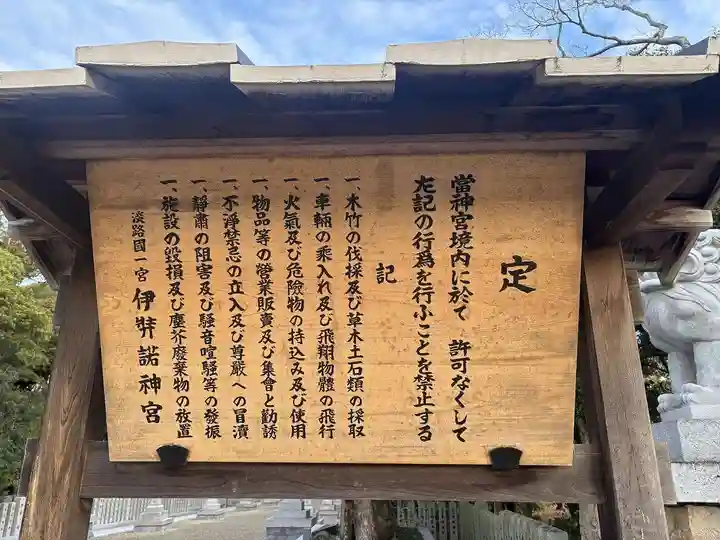 定
當神宮境内に於て 許可なくして
左記の行爲を行ふことを禁止する
記
一、木竹の伐採及び草木土石類の採取
一、車輛の乘入れ及び飛翔物體の飛行
一、火氣及び危險物の持込み及び使用
一、物品等の營業販賣及び集會と勸誘
一、不淨禁忌の立入及び尊嚴への冒瀆
一、靜肅の阻害及び騷音喧騷等の發振
一、施設の毀損及び塵芥廢棄物の放置
淡路國一宮 伊弉諾神宮